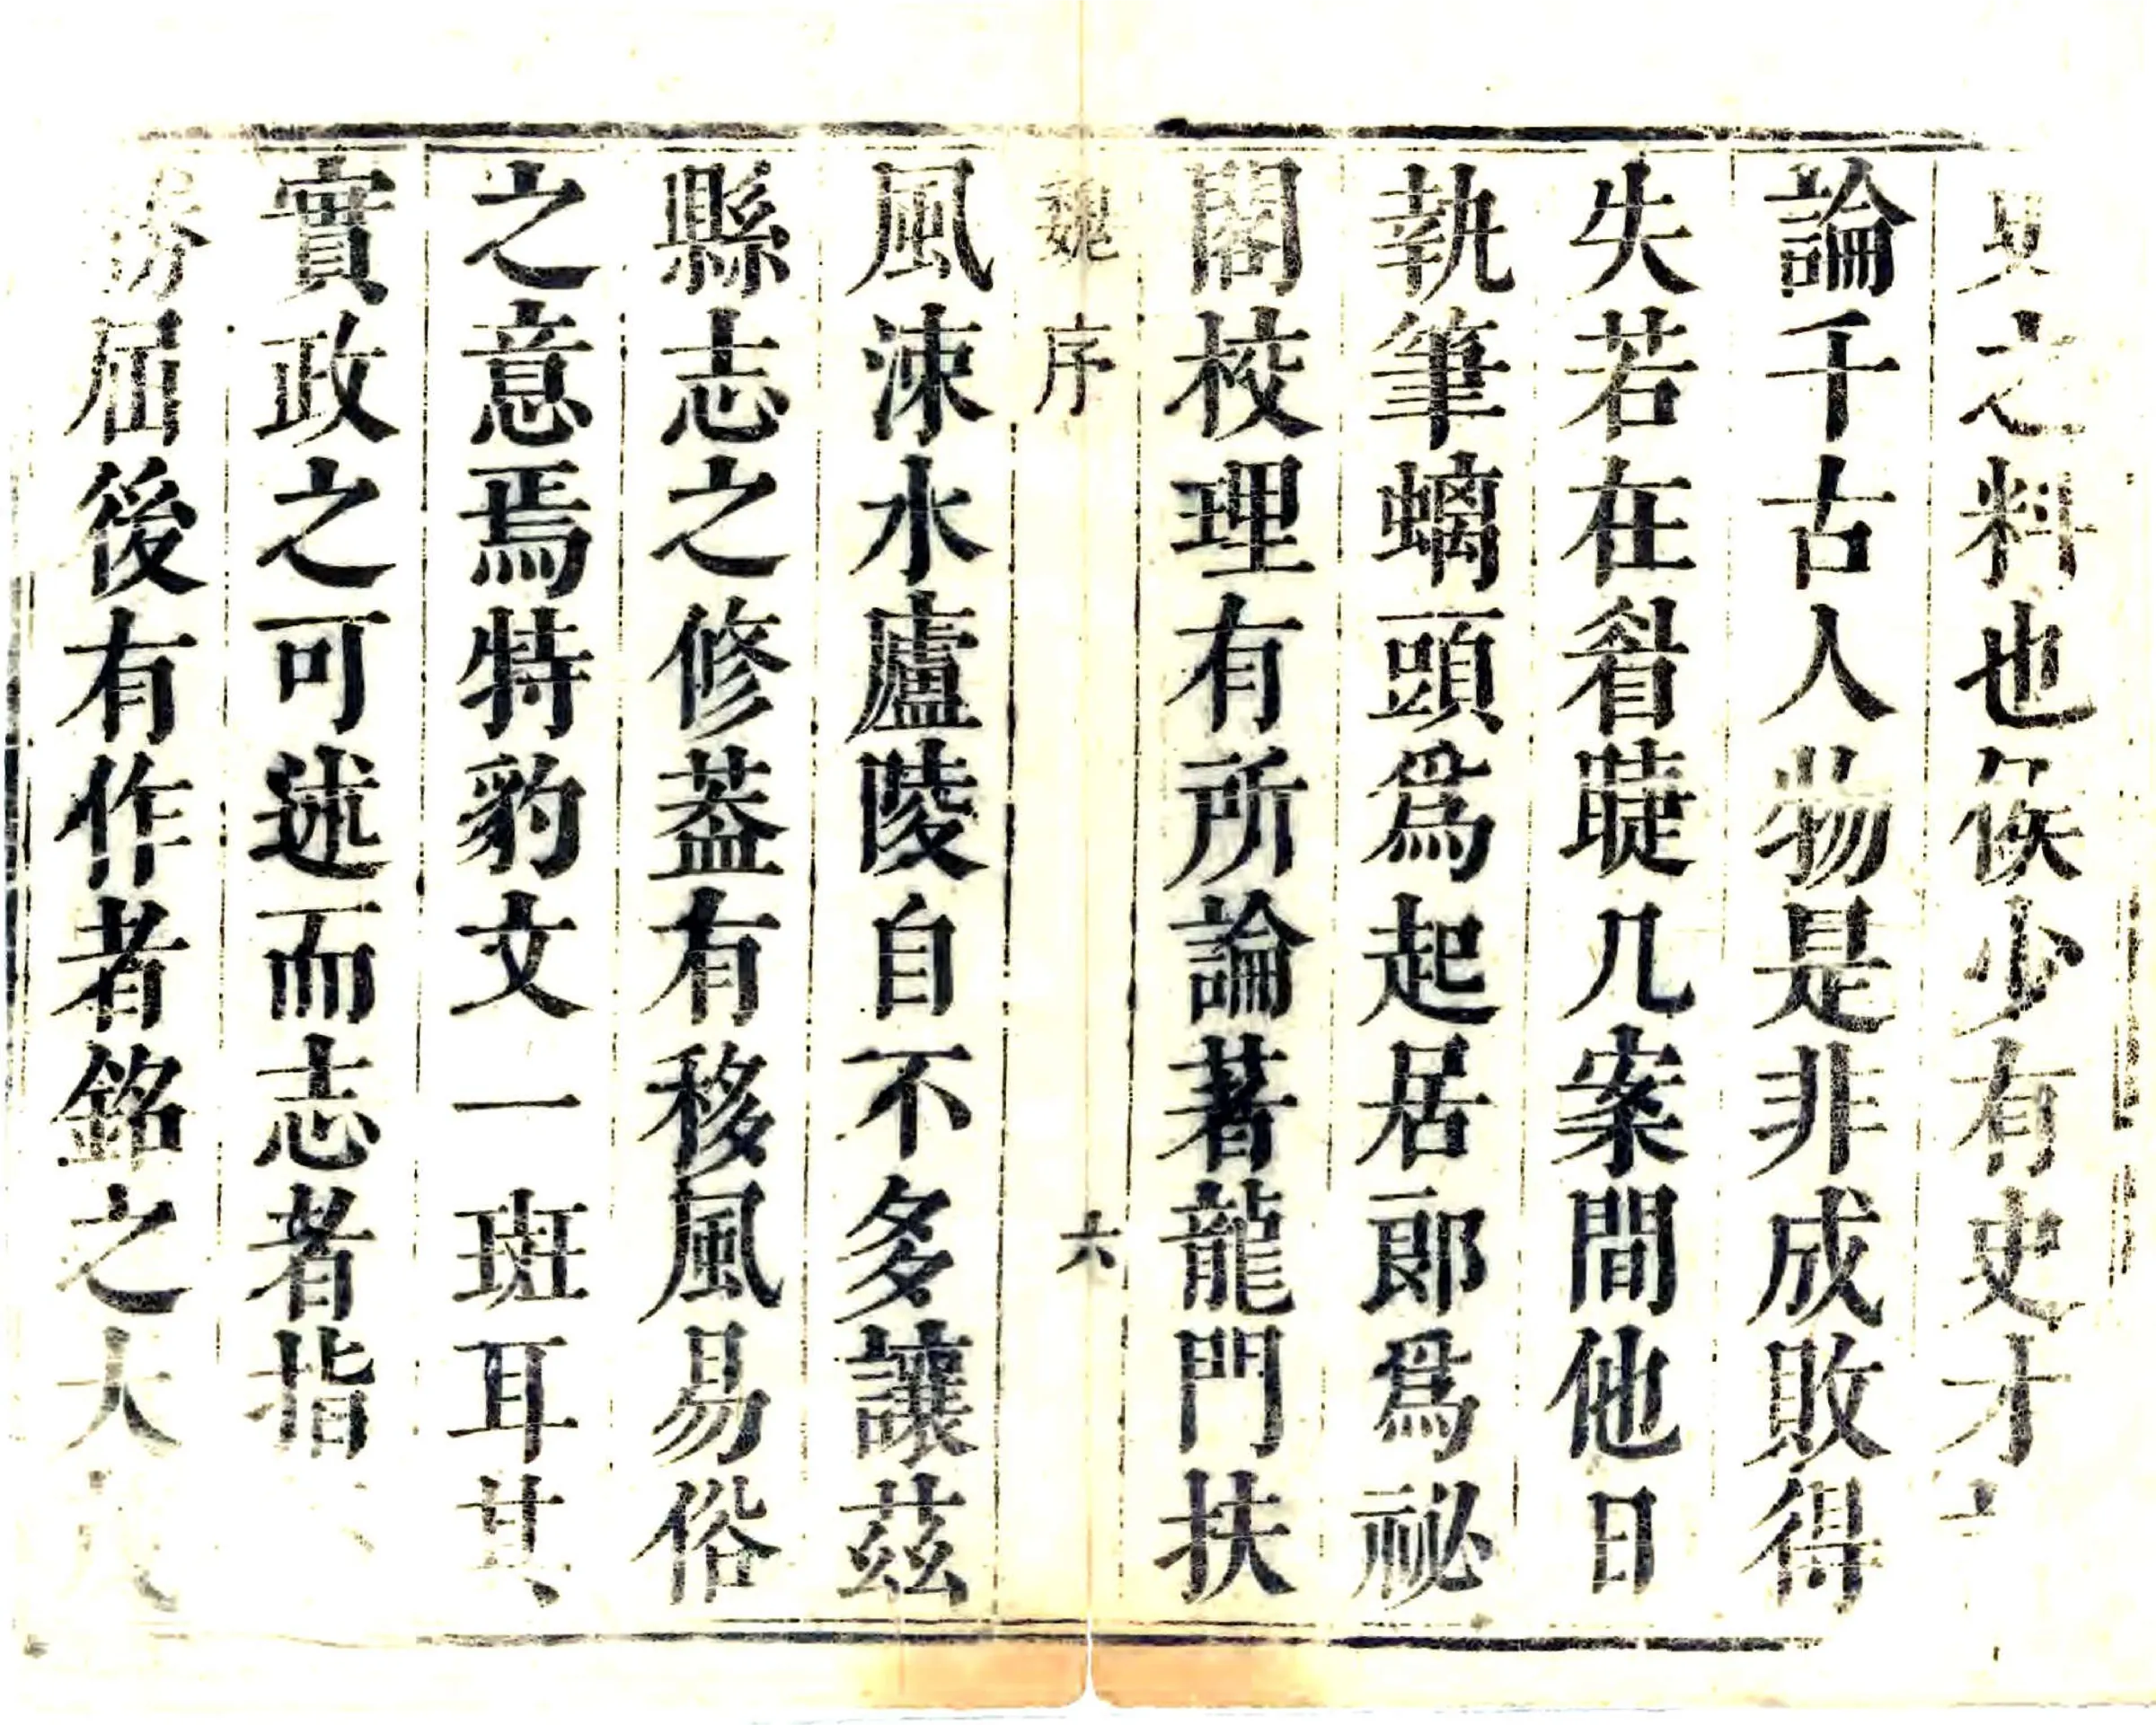 之料也侯少有史才
論千古人物是非成敗得
失若在眉睫几案間他日
執筆螭頭爲起居郎爲祕
閣校理有所論著龍門扶
魏序
六
風涑水廬陵自不多讓茲
縣志之修葢有移風易俗
之意焉特豹文一斑耳其
實政之可述而志者指
屈後有作者銘之大